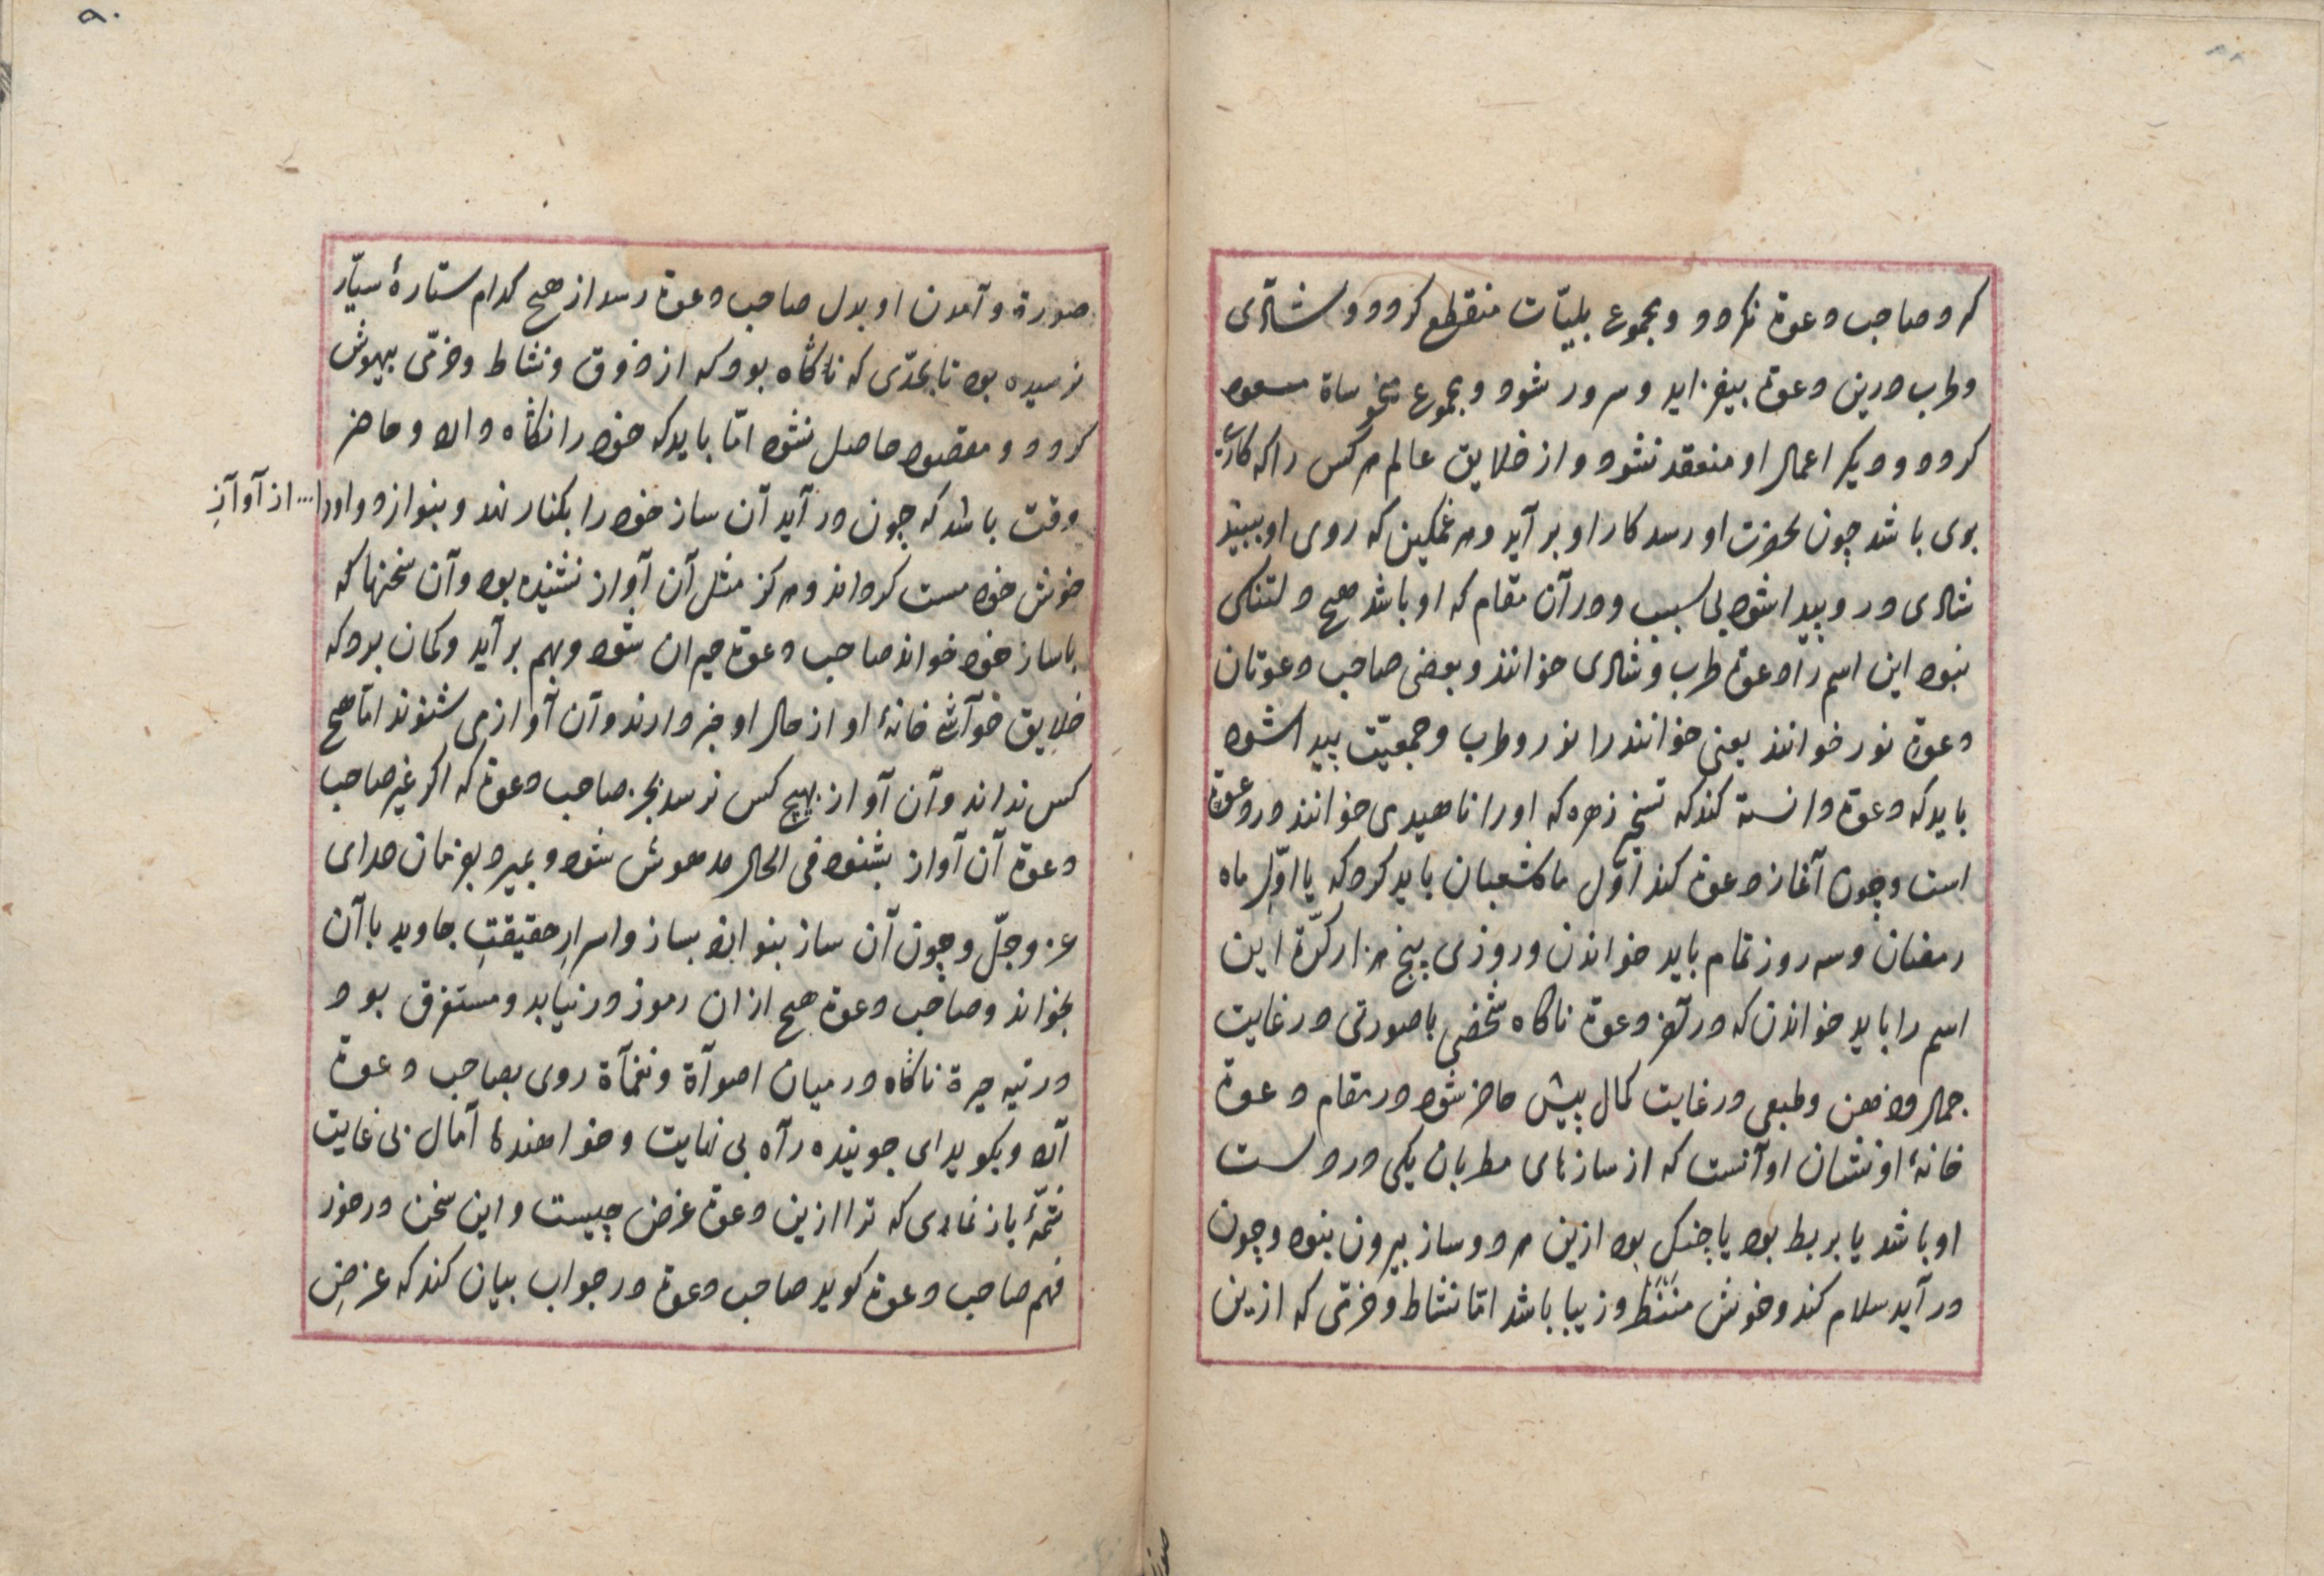 کرد صاحب دعوة نکردد و مجموع بلیّات منقطع کردد و شادی
و طرب درین دعوة بیفزاید و سرور شود و مجموع منحوساة مسعود
کردد و دیکر اعمال او منعقد نشود و از خلایق عالم هر کس را که کاری
بوی باشد چون بحضرت او رسد کار او بر آید و هر غمکین که روی او ببیند
شادی در و پیدا شود بی سبب و در آن مقام که او باشد هیچ دلتنکی
نبود این اسم را دعوة طرب و شادی خوانند و بعضی صاحب دعوتان
دعوة نور خوانند یعنی خوانند را نور و طرب و جمعیّت پیدا شود
باید که دعوة دانسته کند که تسخیر زهره که او را ناهیدی خوانند در دعوة
است و چون آغاز دعوة کند اوّل ماه شعبان باید کرد که یا اوّل ماه
رمضان و سه روز تمام باید خواندن و روزی پنج هزار کرّة این
اسم را باید خواندن که در آخر دعوة ناکاه شخصی با صورتی در غایت
جمال و ذهن و طبعی در غایت کمال پیش حاضر شود در مقام دعوة
خانهٔ او نشان او آنست که از سازهای مطربان یکی در دست
او باشد یا بربط بود یا چنک بود ازین هر دو ساز بیرون نبود و چون
در آید سلام کند و خوش منظر و زیبا باشد امّا نشاط و خرّمی که ازین
صورة و آمدن او بدل صاحب دعوة رسد از هیچ کدام ستارهٔ سیّار
نرسیده بود تا بحدّی که ناکاه بود که از ذوق و نشاط و خرّمی بیهوش
کردد و مقصود حاصل نشود امّا باید که خود را نکاه دارد و حاضر
وقت باشد که چون در آید آن ساز خود را بکنار نهد و بنوازد و او را ... از آواز
خوش خود مست کرداند و هرکز مثل آن آواز نشنیده بود و آن سخنها که
با ساز خود خواند صاحب دعوة حیران شود و بهم بر آید و کمان برد که
خلایق خانهٔ او از حال او خبر دارند و آن آواز می شنوند امّا هیچ
کس نداند و آن آواز بهیچ کس نرسد بجز صاحب دعوة که اکر غیر صاحب
دعوة آن آواز بشنود فی الحال مدهوش شود و بمیرد بفرمان خدای
عزّ و جلّ و چون آن ساز بنوازد بساز و اسرارِ حقیقتِ جاوید با آن
بخواند و صاحب دعوة هیچ از ان رموز در نیابد و مستغرق بود
در تیه حیرة ناکاه در میان اصوآة و نغمآة روی بصاحب دعوة
آرد و بکوید ای جوینده رآه بی نهایت و خواهندهٔ آمال بی غایت
شمّهٔ باز نمای که ترا ازین دعوة غرض چیست و این سخن در خور
فهم صاحب دعوة کوید صاحب دعوة در جواب بیان کند که غرضِ
۹۰